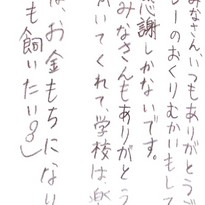 みなさん、いつもありがとうご
レーのおくりむかいもして
感謝しかないです。
みなさんもありがとう
いてくれて、学校は楽
はお金もちにない
も飼いたい。」